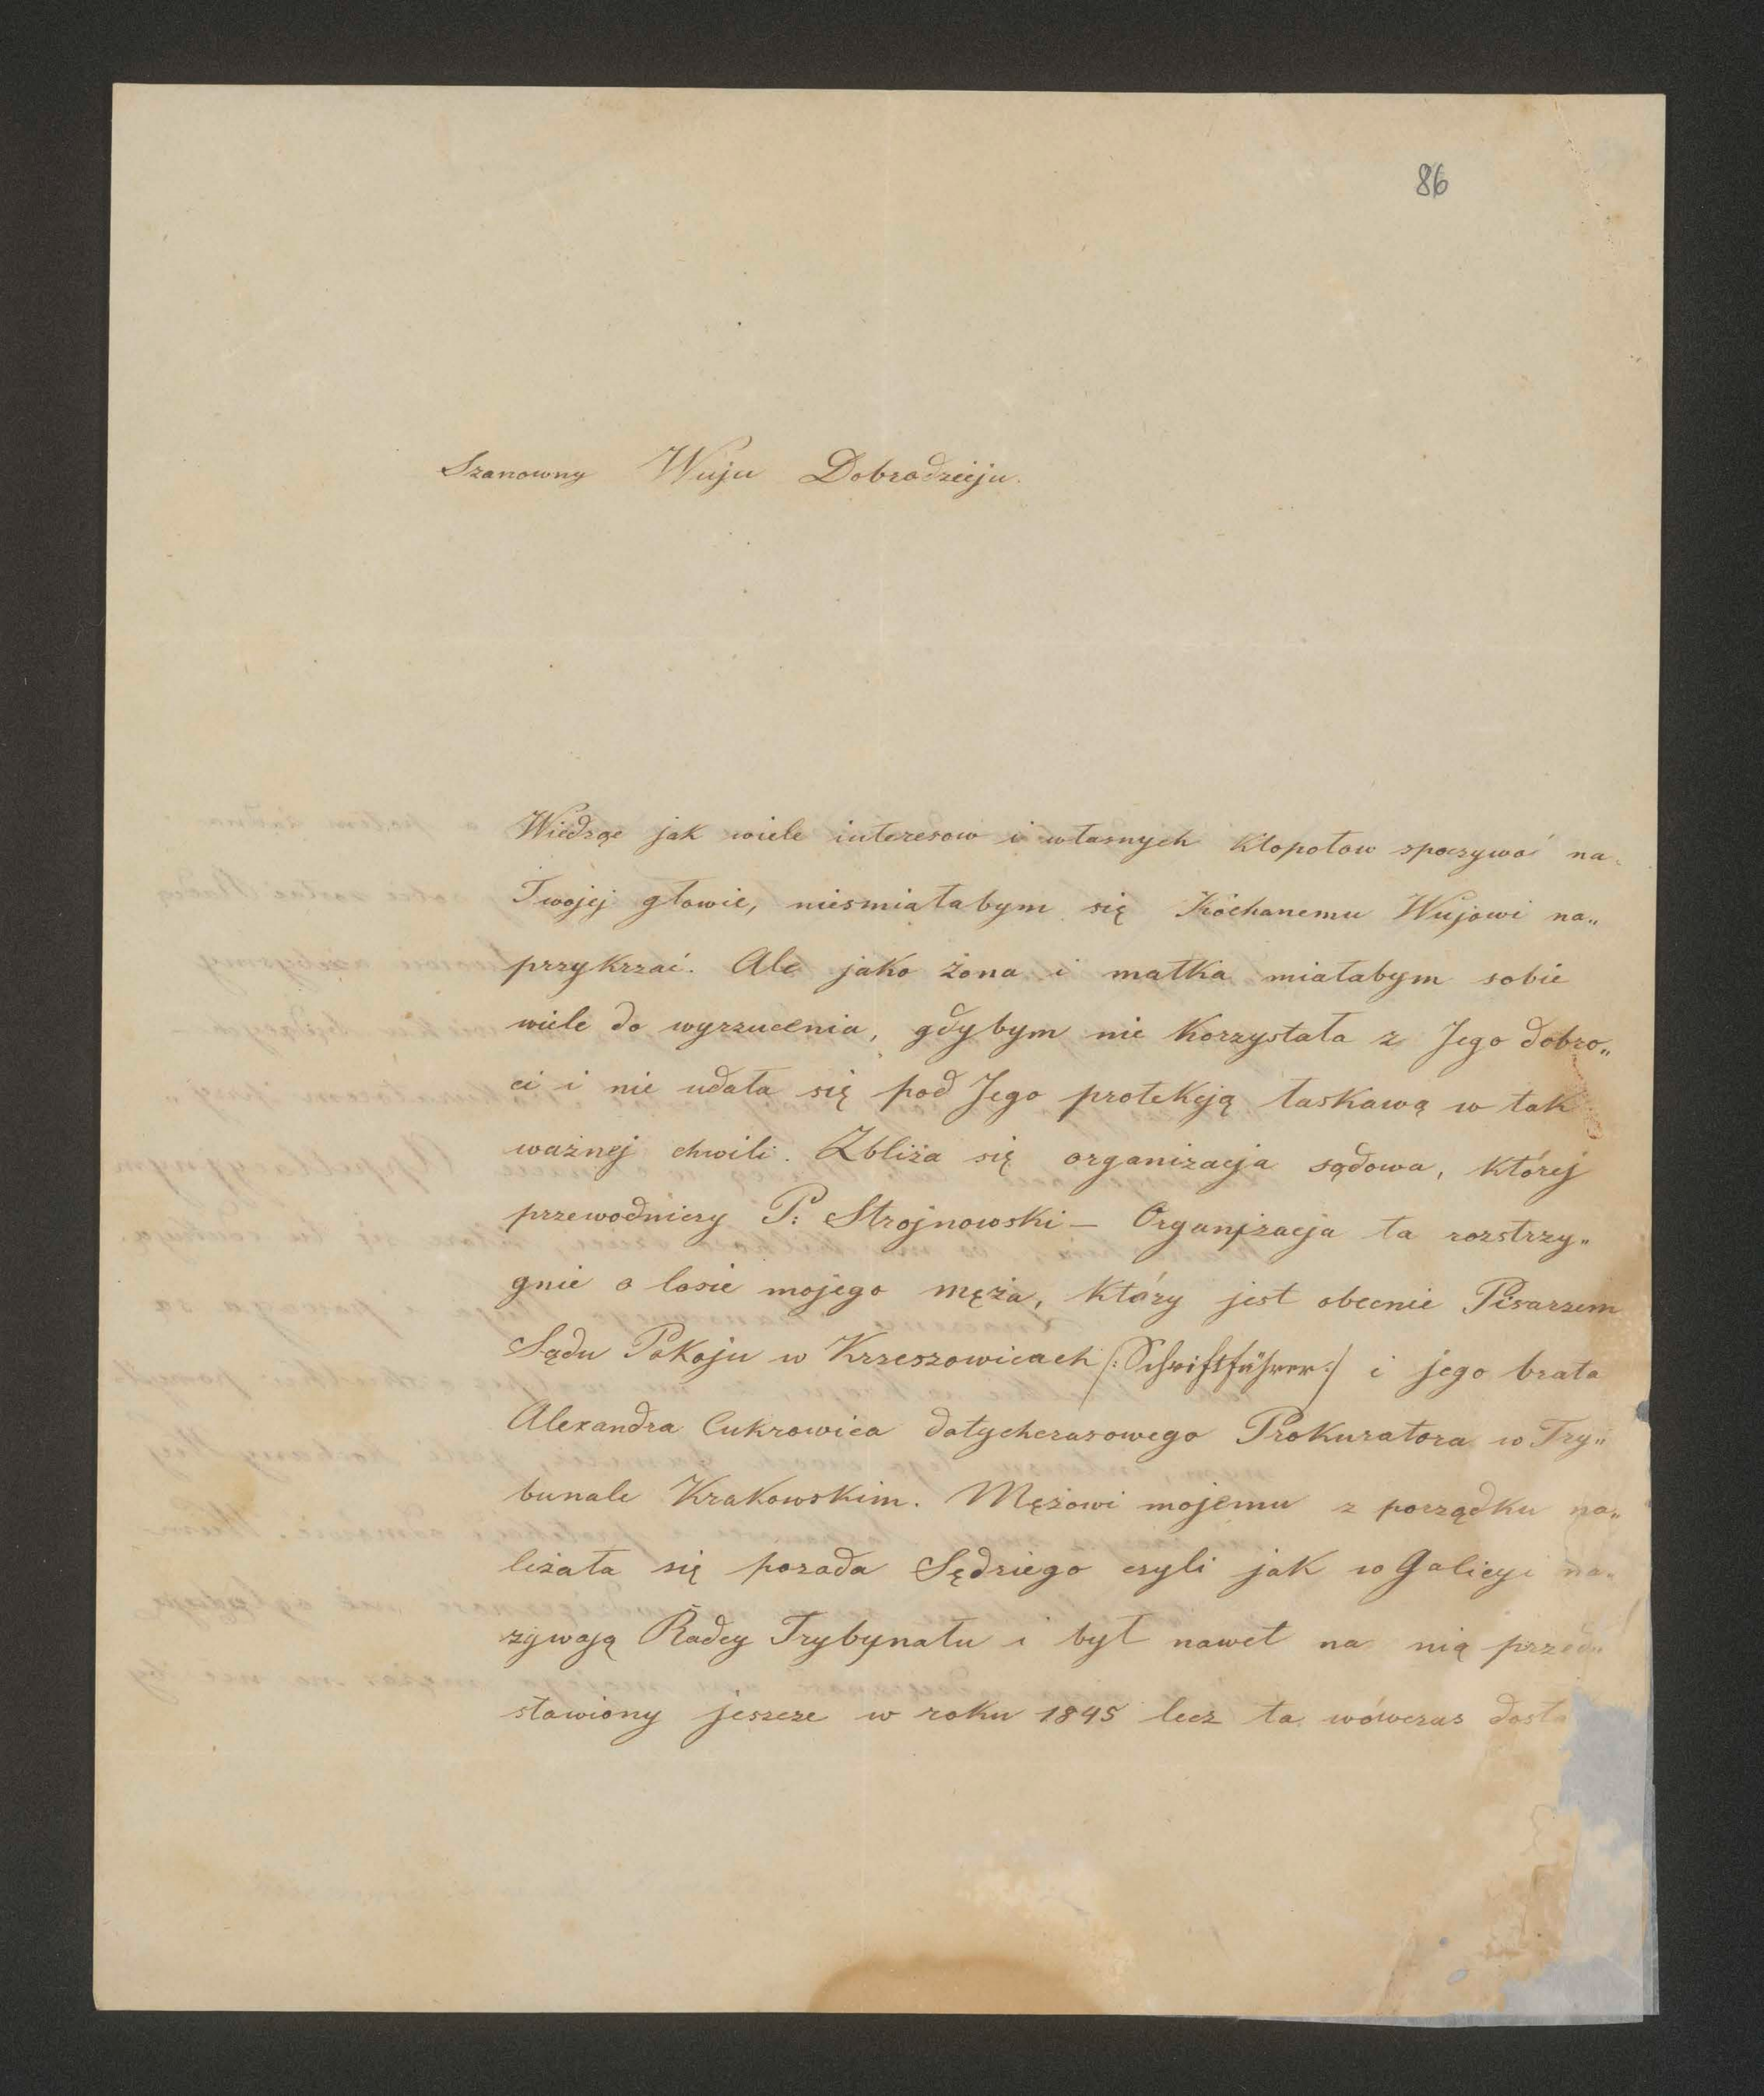 86
Szanowny Wuju Dobrodzieju.
Wiedząc jak wiele interesow i własnych kłopotow spoczywać na
Twojej głowie, niesmiałabym się Kochanemu Wujowi na„
przykrzać. Ale jako żona i matka miałabym sobie
wiele do wyrzucenia, gdybym nie korzystała z Jego dobro„
ci i nie udała się pod Jego protekcją łaskawą w tak
ważnej chwili. Zbliża się organizacja sądowa, której
przewodniczy P: Strojnowski — Organizacja ta rozstrzy„
gnie o losie mojego męża, który jest obecnie Pisarzem
Sądu Pokoju w Krzeszowicach /:Schriftführer:/ i jego brata
Alexandra Cukrowicza dotychczasowego Prokuratora w Try„
bunale Krakowskim. Mężowi mojemu z porządku na„
leżała się posada Sędziego czyli jak w Galicyi na„
zywają Radcy Trybynału i był nawet na nią przed„
stawiony jeszcze w roku 1845 lecz ta wówczas dosta